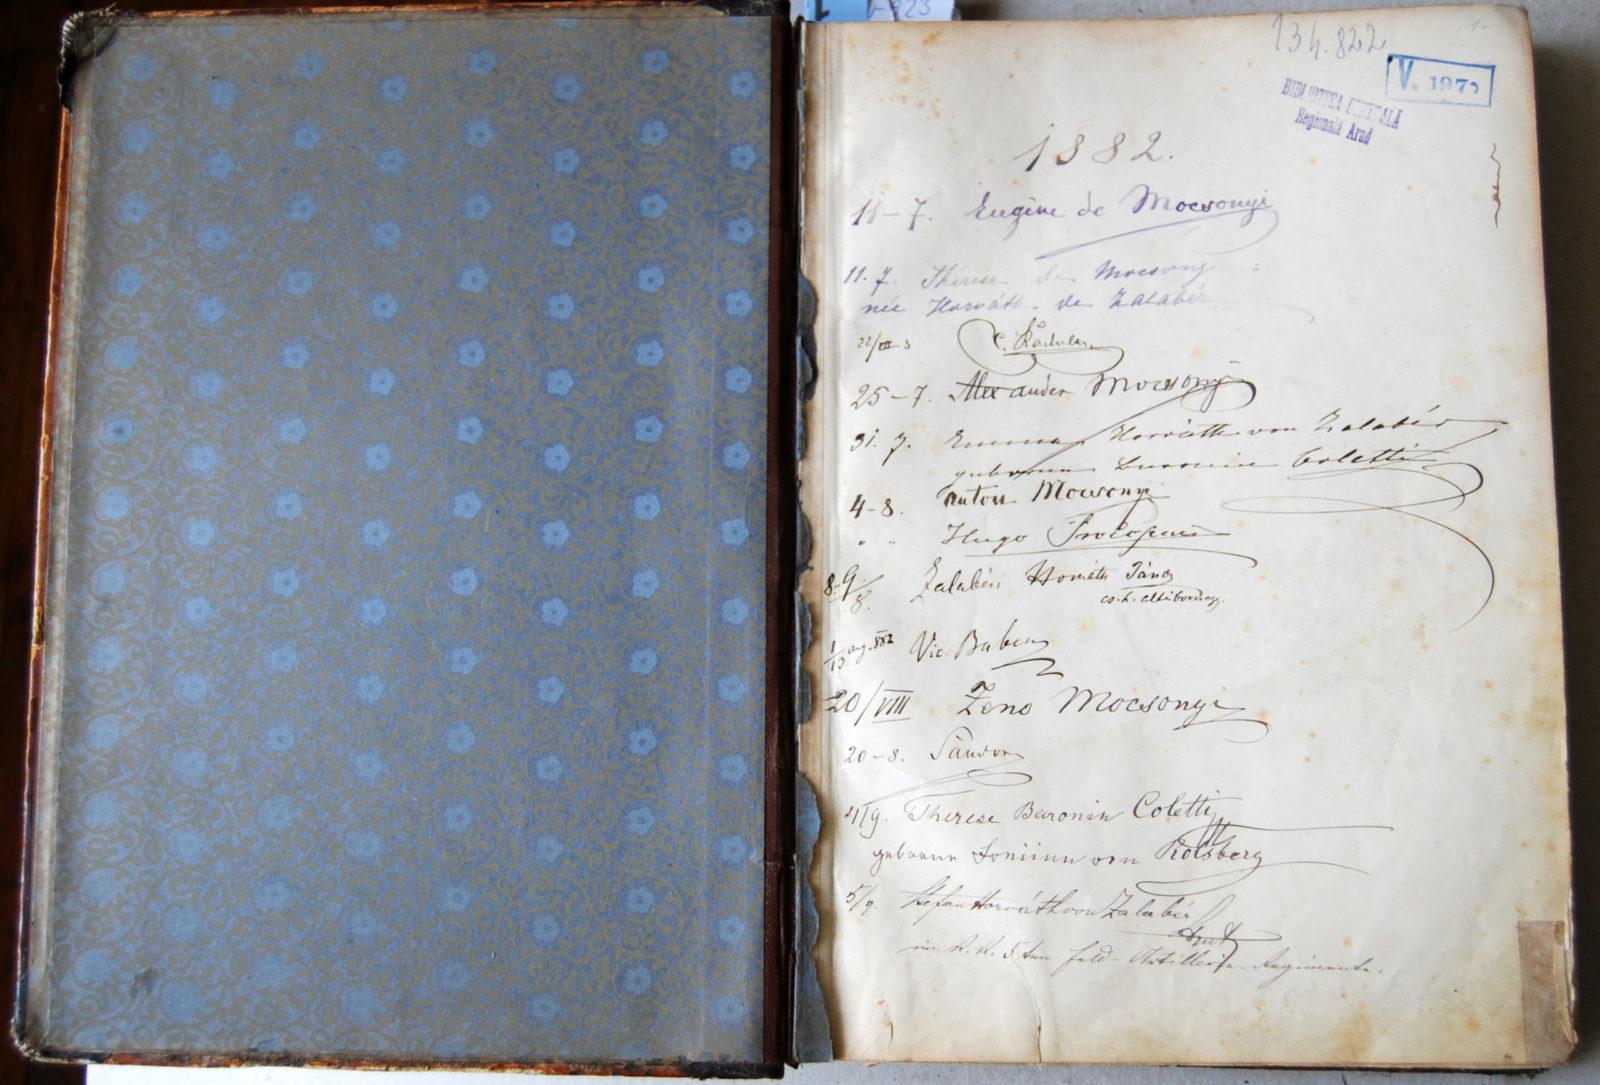 134.822
V. 1970
BIBLIOTECA CENTRALA
Regională Arad
1882.
11-7. Eugène de Mocsonyi
11. 7. Thérèse de Mocsonyi
née Horváth de Zalabér
C. Radulescu
25-7. Alexander Mocsonyi
31. 7. Emma Horváth von Zalabér
geborene Baronin Coletti
4-8. Anton Mocsonyi
" " Hugo
Zalabéri Horváth János
1/13 aug. 882 Vic. Babeș
20/VIII Zeno Mocsonyi
20-8. Sándor
4/9. Therese Baronin Coletti
geborene von Rolsberg
5/9. Stefan Horváth von Zalabér
im K. K. 5ten Feld-Artillerie-Regimente.